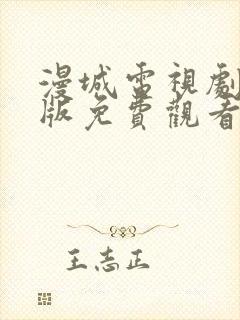 漫城電視劇
版免費觀看
王志正